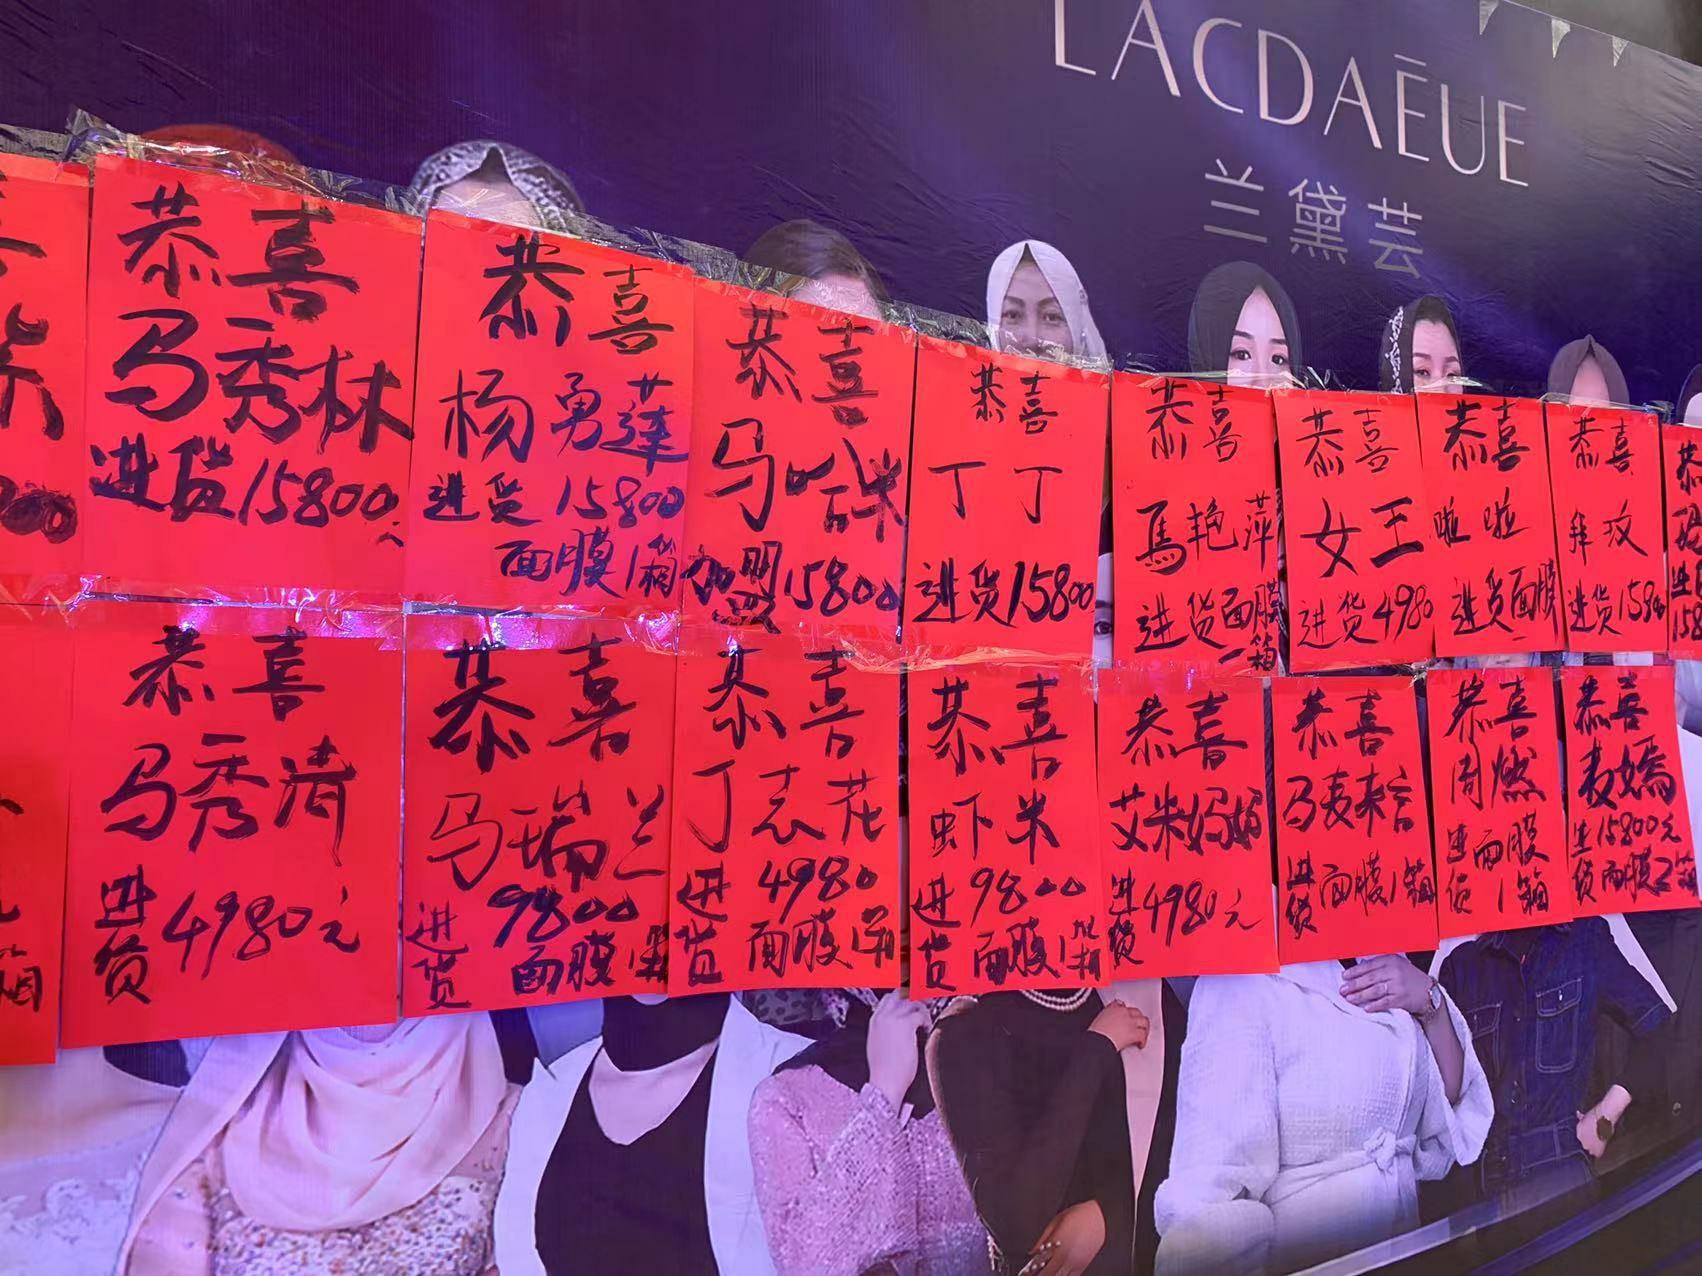 LACDAĒUE
兰黛芸
恭喜
马秀林
进货15800元
恭喜
杨勇莲
进货15800
面膜1箱
恭喜
马哈米
加盟15800
恭喜
丁丁
进货15800
恭喜
馬艳萍
进货面膜
一箱
恭喜
女王
进货4980
恭喜
啦啦
进货面膜
恭喜
拜玟
进货15800
恭
进
158
恭喜
马秀清
进货4980元
恭喜
马瑞兰
进货9800
面膜1箱
恭喜
丁志花
进货4980
面膜1箱
恭喜
虾米
进货9800
面膜1箱
恭喜
艾米妈妈
进货4980元
恭喜
马麦来言
进货面膜1箱
恭喜
周燃
进货面膜
1箱
恭喜
麦嫣
进货15800元
面膜2箱